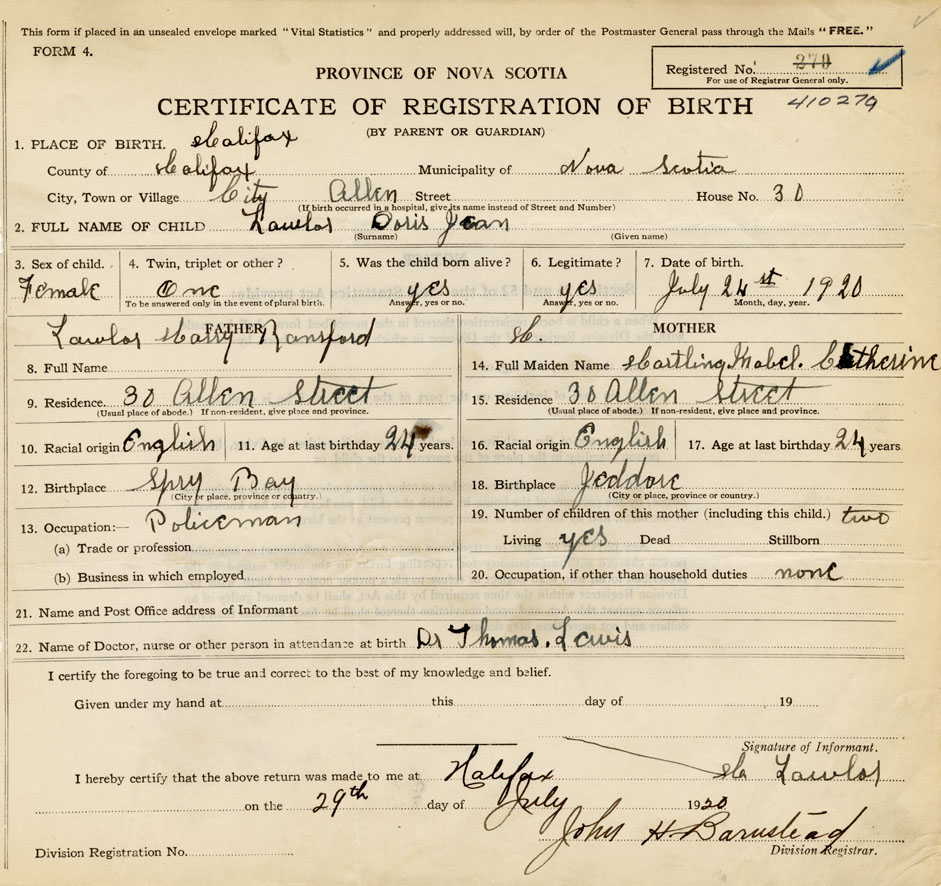 This form if placed in an unsealed envelope marked "Vital Statistics" and properly addressed will, by order of the Postmaster General pass through the Mails "FREE."
FORM 4.
Registered No. 279
For use of Registrar General only.
PROVINCE OF NOVA SCOTIA
CERTIFICATE OF REGISTRATION OF BIRTH 410279
(BY PARENT OR GUARDIAN)
1. PLACE OF BIRTH. Halifax
County of Halifax Municipality of Nova Scotia
City, Town or Village City Allen Street House No. 30
(If birth occurred in a hospital, give its name instead of Street and Number)
2. FULL NAME OF CHILD Lawlor Doris Jean
(Surname) (Given name)
3. Sex of child. 4. Twin, triplet or other? 5. Was the child born alive? 6. Legitimate? 7. Date of birth.
Female One yes yes July 24st 1920
To be answered only in the event of plural birth. Answer, yes or no. Answer, yes or no. Month, day, year.
FATHER MOTHER
Lawlor Harry Ransford H.
8. Full Name 14. Full Maiden Name Hartling Mabel. Catherine
9. Residence. 30 Allen Street 15. Residence 30 Allen Street
(Usual place of abode.) If non-resident, give place and province. (Usual place of abode.) If non-resident, give place and province.
10. Racial origin English 11. Age at last birthday 24 years. 16. Racial origin English 17. Age at last birthday 24 years
12. Birthplace Spry Bay 18. Birthplace Jeddore
(City or place, province or country.) (City or place, province or country.)
13. Occupation:— Policeman 19. Number of children of this mother (including this child.) two
(a) Trade or profession Living yes Dead Stillborn
(b) Business in which employed 20. Occupation, if other than household duties none
21. Name and Post Office address of Informant
22. Name of Doctor, nurse or other person in attendance at birth Dr Thomas. Lewis
I certify the foregoing to be true and correct to the best of my knowledge and belief.
Given under my hand at this day of 19
Signature of Informant.
I hereby certify that the above return was made to me at Halifax H Lawlor
on the 29th day of July 1920
John H Barnstead
Division Registration No. Division Registrar.